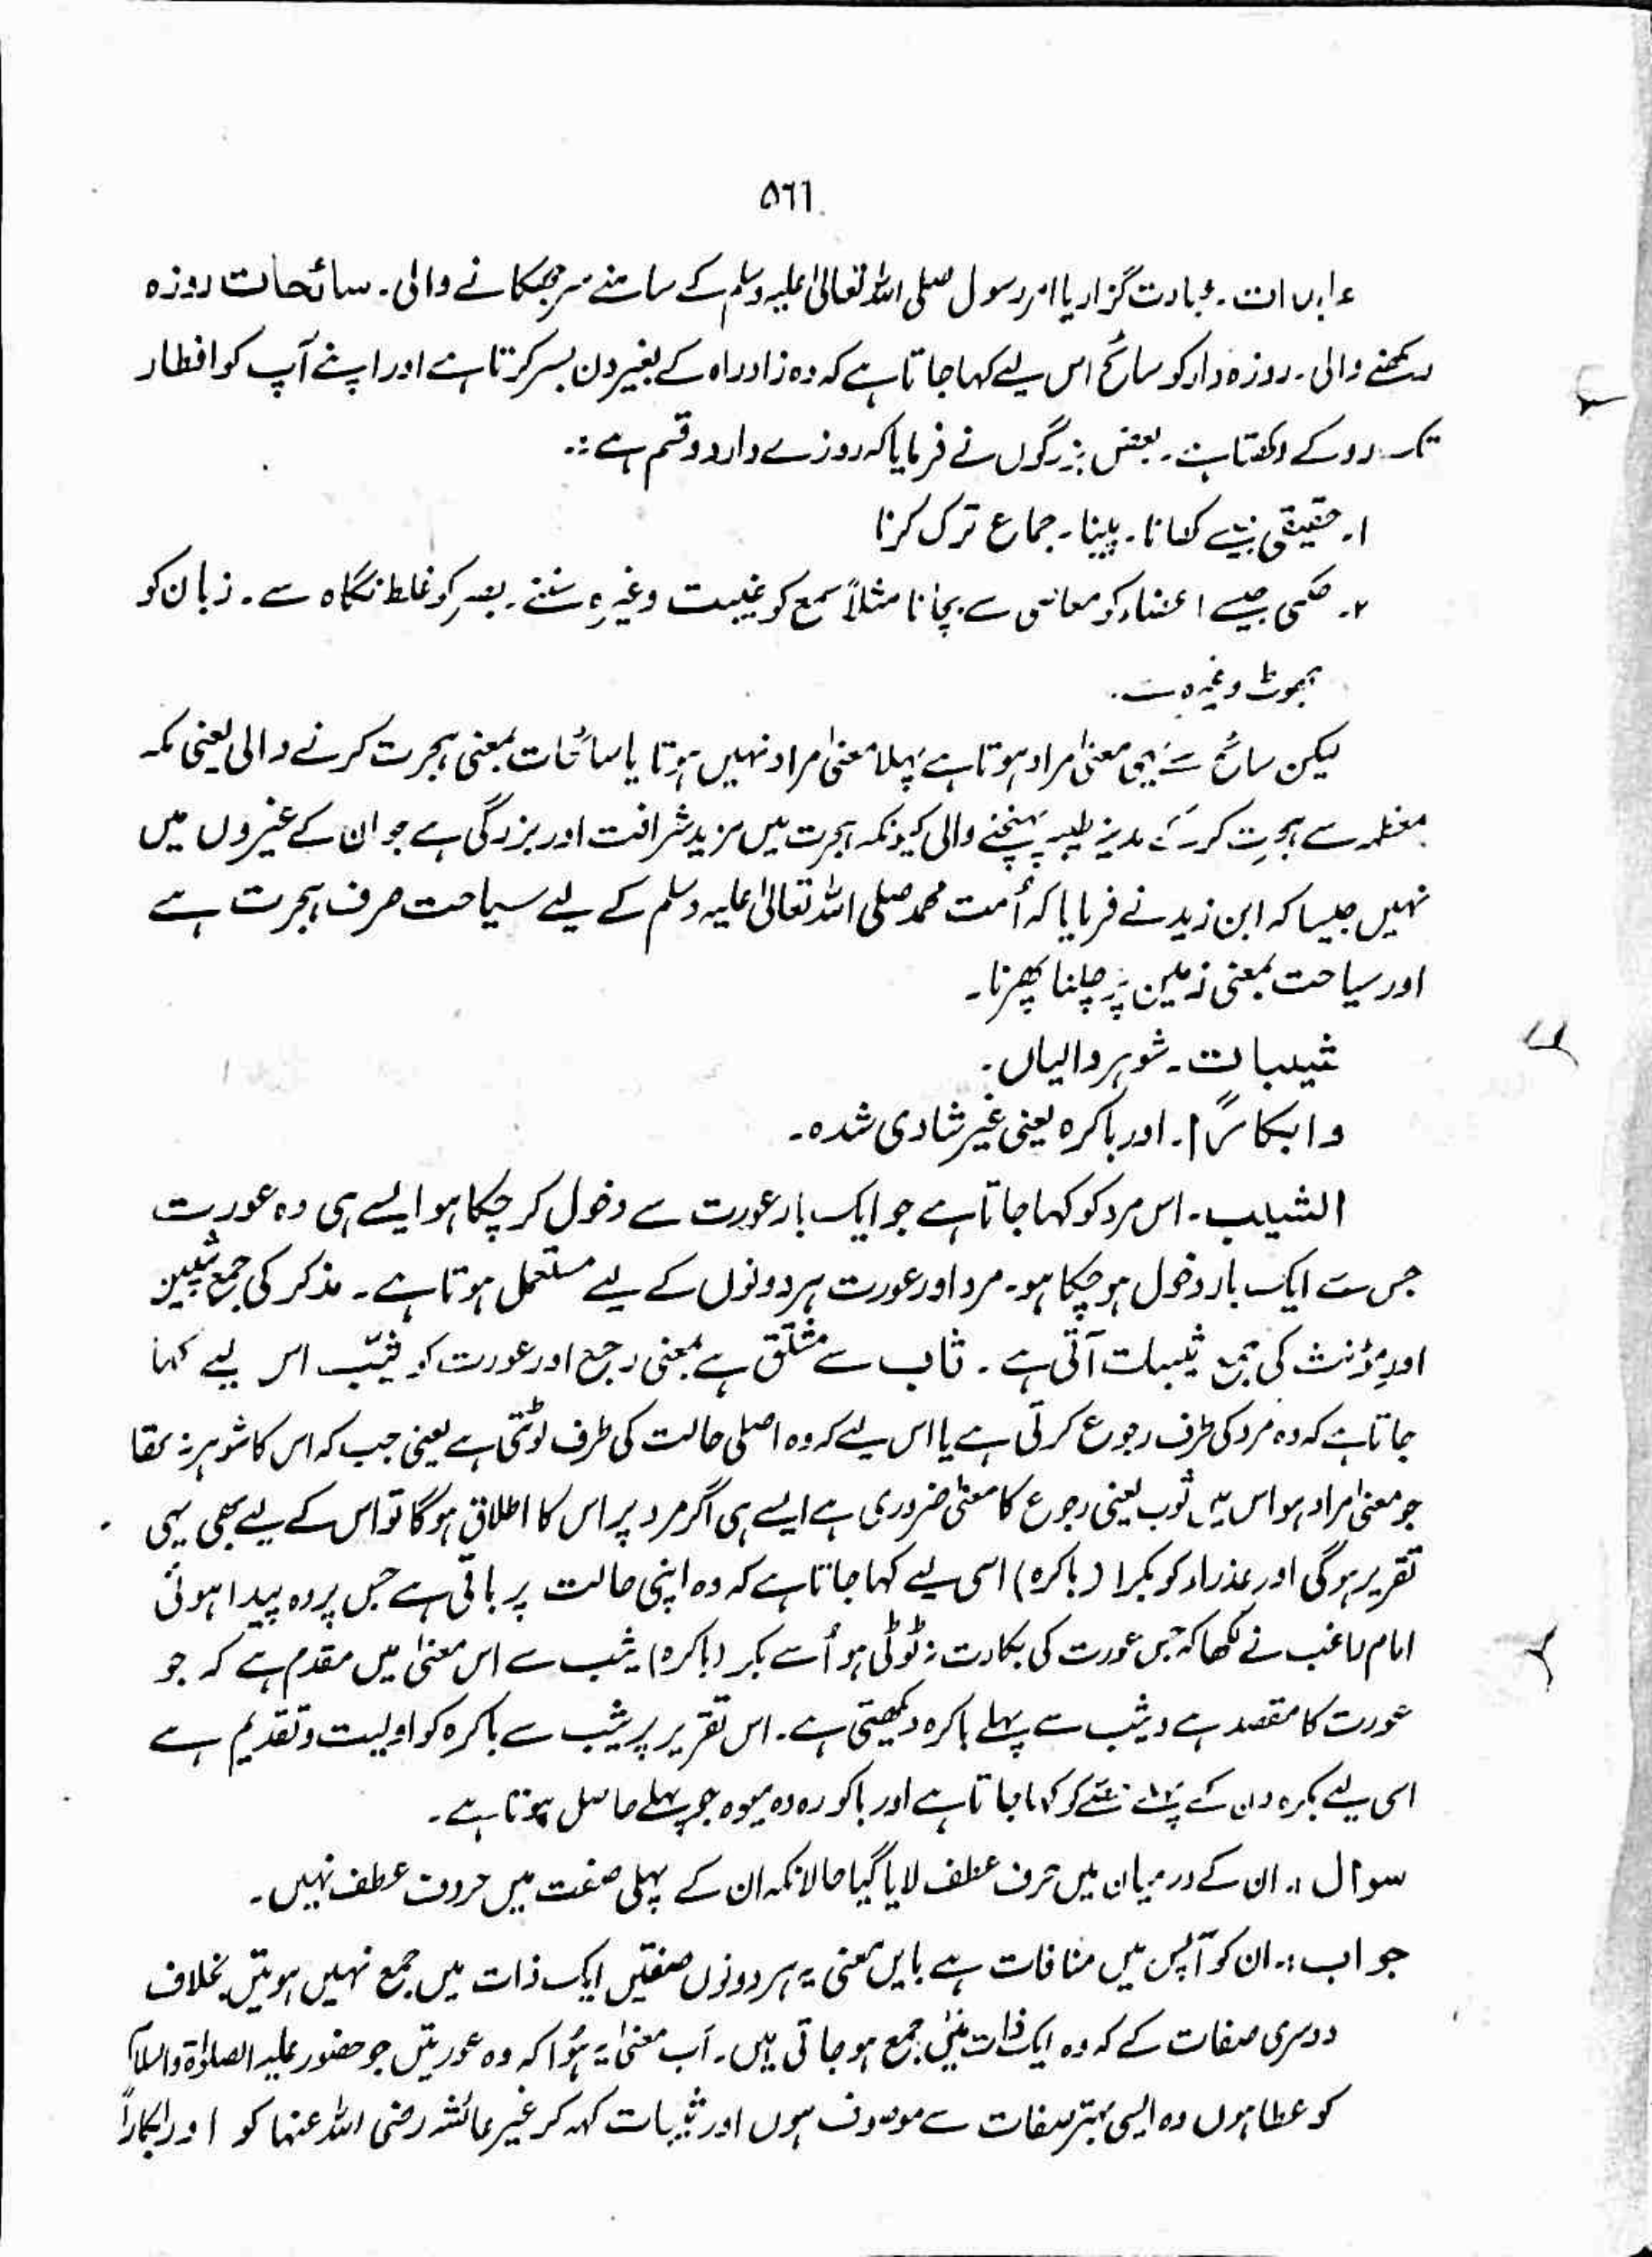 ۵٦١
عابدات۔ عبادت گزار یا امر رسول صلی اللہ تعالیٰ علیہ وسلم کے سامنے سر جھکانے والی۔ سائحات روزہ
رکھنے والی۔ روزہ دار کو سائح اس لیے کہا جاتا ہے کہ وہ زاد راہ کے بغیر دن بسر کرتا ہے اور اپنے آپ کو افطار
تک روکے رکھتا ہے۔ بعض بزرگوں نے فرمایا کہ روزے دار دو قسم ہے :۔
۱۔ حقیقی جیسے کھانا۔ پینا۔ جماع ترک کرنا
۲۔ حکمی جیسے اعضاء کو معاصی سے بچانا مثلاً سمع کو غیبت وغیرہ سننے۔ بصر کو غلط نگاہ سے۔ زبان کو
جھوٹ وغیرہ سے۔
لیکن سائح سے یہی معنیٰ مراد ہوتا ہے پہلا معنیٰ مراد نہیں ہوتا یا سائحات بمعنی ہجرت کرنے والی یعنی مکہ
معظمہ سے ہجرت کر کے مدینہ طیبہ پہنچنے والی کیونکہ ہجرت میں مزید شرافت اور بزرگی ہے جو ان کے غیروں میں
نہیں جیسا کہ ابن زید نے فرمایا کہ اُمت محمد صلی اللہ تعالیٰ علیہ وسلم کے لیے سیاحت صرف ہجرت ہے
اور سیاحت بمعنی زمین پر چلنا پھرنا۔
ثیبات۔ شوہر والیاں۔
وابکارًا۔ اور باکرہ یعنی غیر شادی شدہ۔
الثیب۔ اس مرد کو کہا جاتا ہے جو ایک بار عورت سے دخول کر چکا ہو ایسے ہی وہ عورت
جس سے ایک بار دخول ہو چکا ہو۔ مرد اور عورت ہر دونوں کے لیے مستعمل ہوتا ہے۔ مذکر کی جمع ثیبین
اور مؤنث کی جمع ثیبات آتی ہے۔ ثاب سے مشتق ہے بمعنی رجع اور عورت کو ثیّب اس لیے کہا
جاتا ہے کہ وہ مرد کی طرف رجوع کرتی ہے یا اس لیے کہ وہ اصلی حالت کی طرف لوٹتی ہے یعنی جب کہ اس کا شوہر نہ تھا
جو معنیٰ مراد ہو اس میں ثوب یعنی رجوع کا معنیٰ ضروری ہے ایسے ہی اگر مرد پر اس کا اطلاق ہو گا تو اس کے لیے بھی یہی
تقریر ہو گی اور عذراء کو بکرا (باکرہ) اسی لیے کہا جاتا ہے کہ وہ اپنی حالت پر باقی ہے جس پر وہ پیدا ہوئی
امام راغب نے لکھا کہ جس عورت کی بکارت نہ ٹوٹی ہو اُسے بکر (باکرہ) ثیب سے اس معنیٰ میں مقدم ہے کہ جو
عورت کا مقصد ہے و ثیب سے پہلے باکرہ دیکھتی ہے۔ اس تقریر پر ثیب سے باکرہ کو اولیت و تقدیم ہے
اسی لیے بکرہ دن کے پہلے حصے کو کہا جاتا ہے اور باکورہ وہ میوہ جو پہلے حاصل ہوتا ہے۔
سوال :۔ ان کے درمیان میں حرف عطف لایا گیا حالانکہ ان کے پہلی صفت میں حروف عطف نہیں۔
جواب :۔ ان کو آپس میں منافات ہے بایں معنی یہ ہر دونوں صفتیں ایک ذات میں جمع نہیں ہوتیں بخلاف
دوسری صفات کے کہ وہ ایک ذات میں جمع ہو جاتی ہیں۔ اب معنیٰ یہ ہُوا کہ وہ عورتیں جو حضور علیہ الصلوٰۃ والسلام
کو عطا ہوں وہ ایسی بہتر صفات سے موصوف ہوں اور ثیبات کہہ کر غیر عائشہ رضی اللہ عنہا کو اور ابکاراً